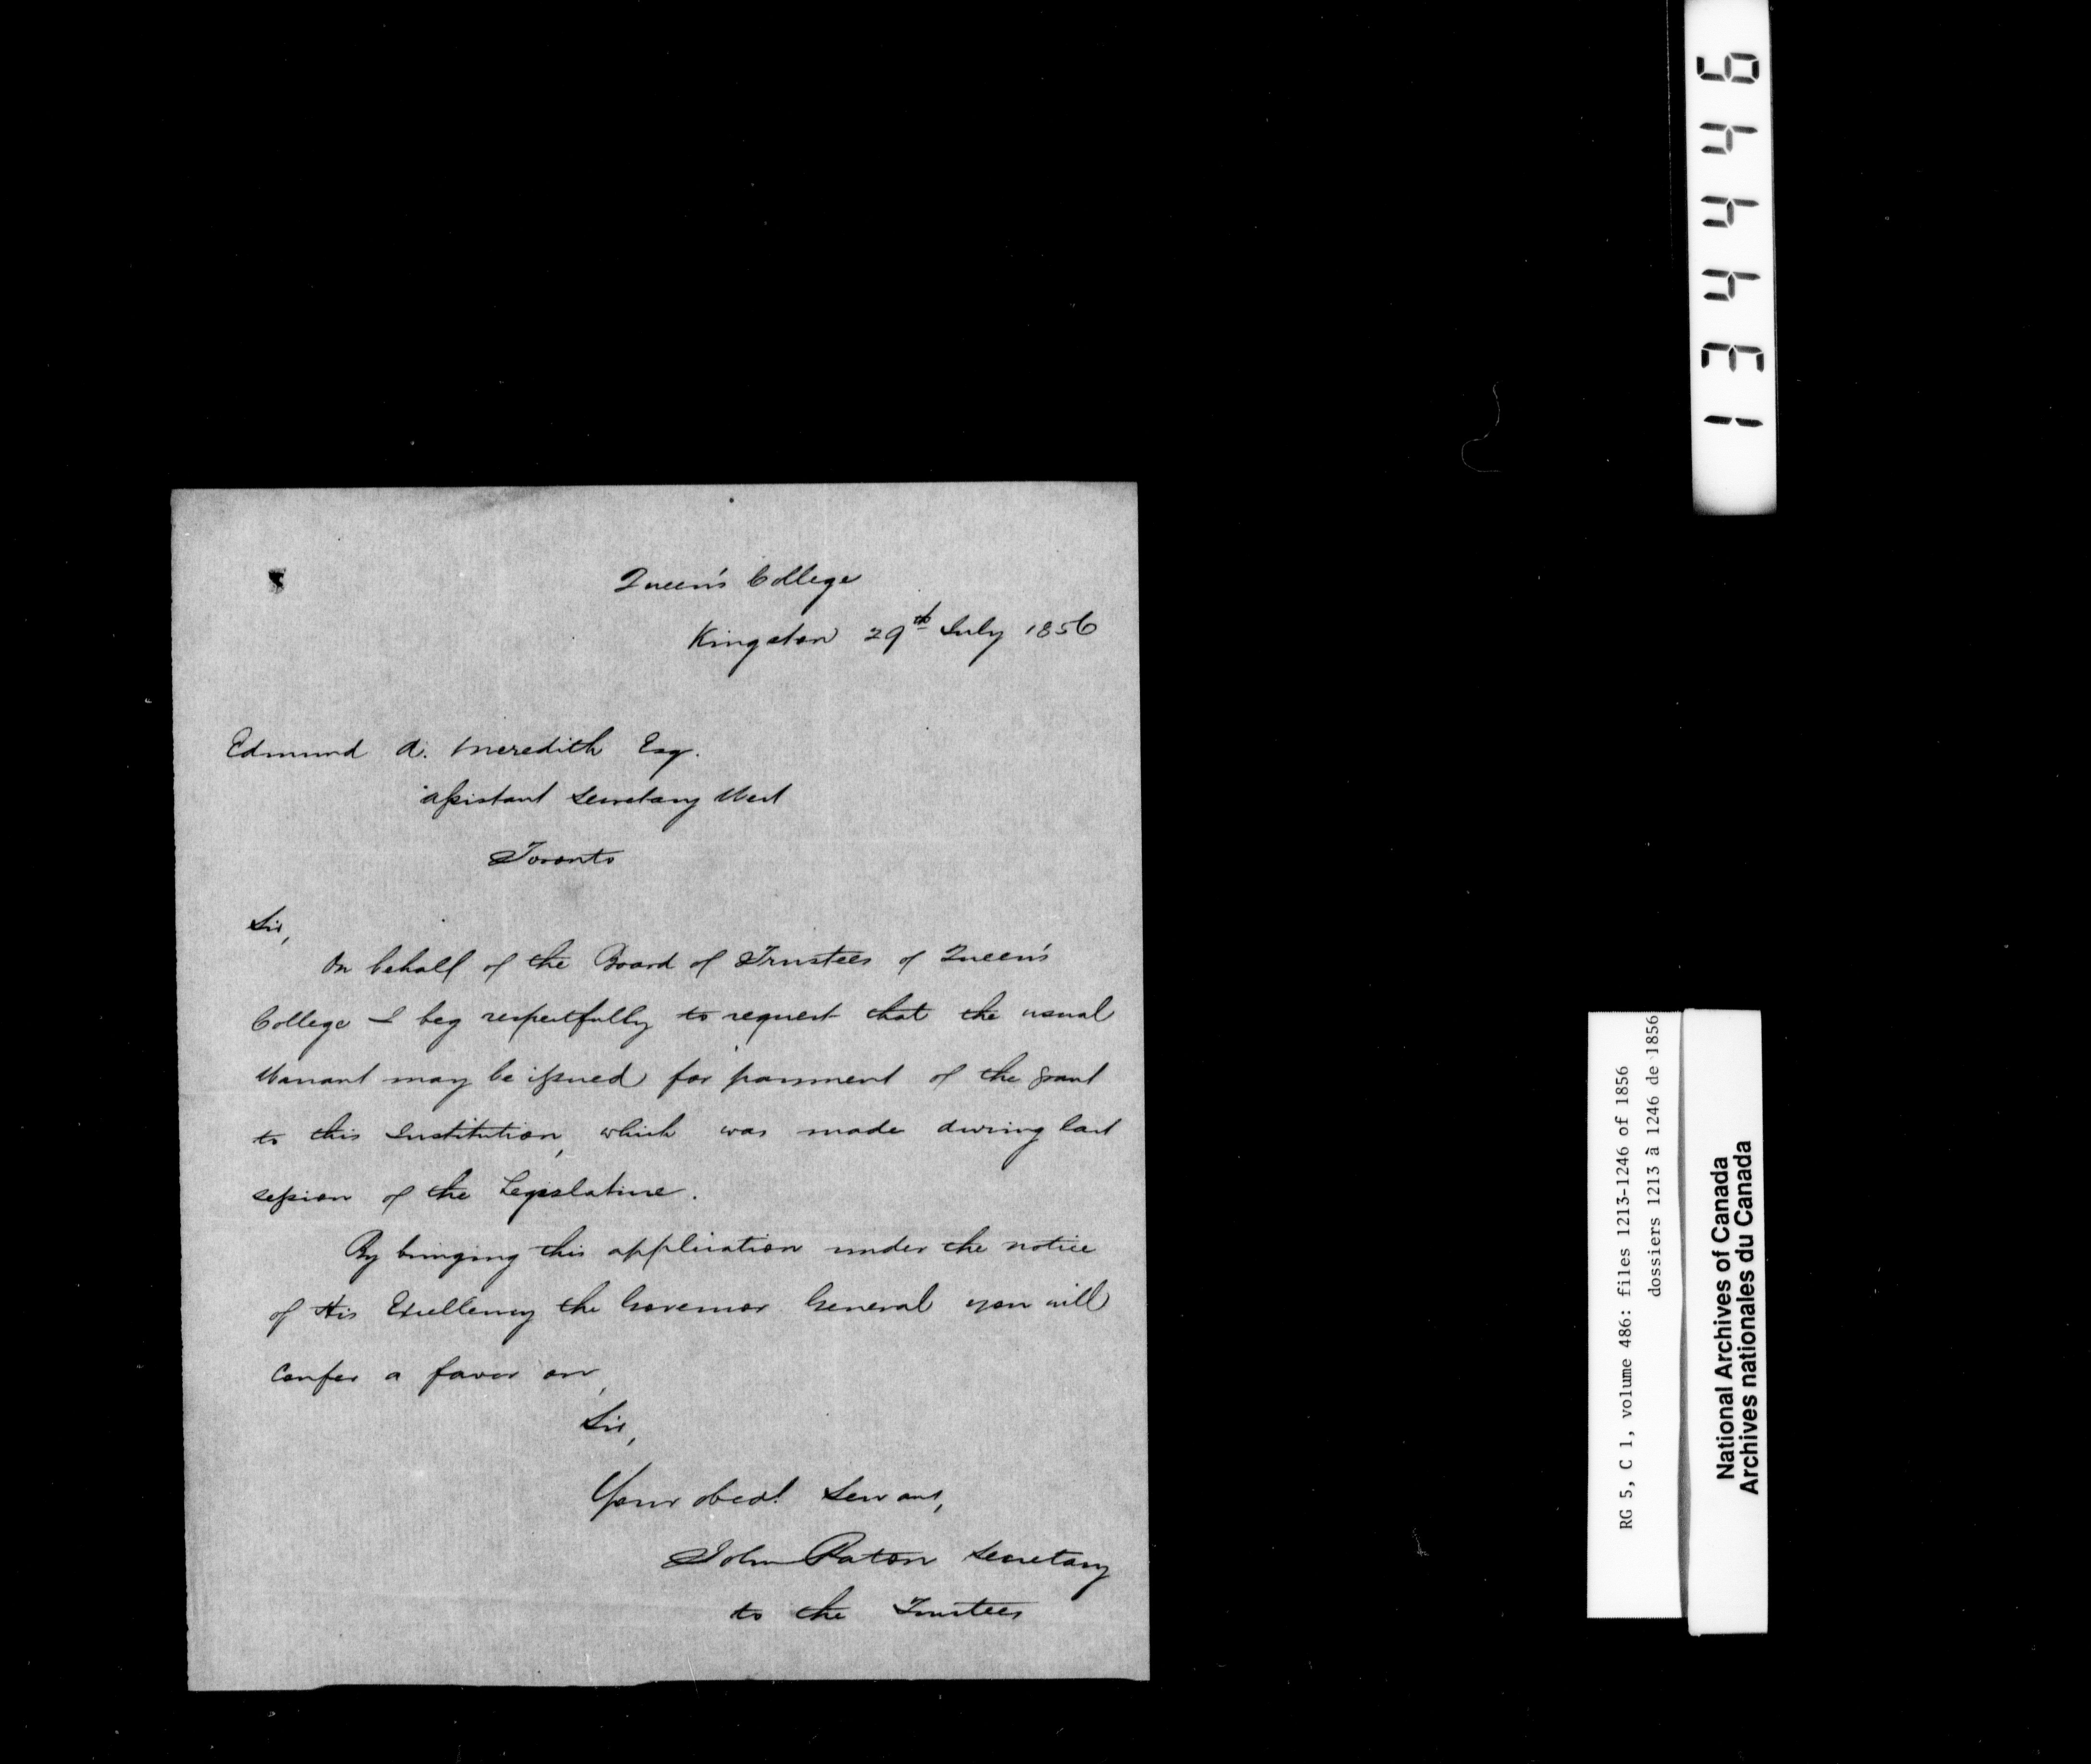 Queen's College
Kingston 29th July 1856
Edmund A. Meredith Esq.
Assistant Secretary West
Toronto
Sir,
On behalf of the Board of Trustees of Queen's
College I beg respectfully to request that the usual
Warrant may be issued for payment of the grant
to this Institution, which was made during last
session of the Legislature.
By bringing this application under the notice
of His Excellency the Governor General you will
confer a favor on,
Sir,
Your obedt Servant,
John Paton Secretary
to the Trustees
134446
RG 5, C 1, volume 486: files 1213-1246 of 1856
dossiers 1213 à 1246 de 1856
National Archives of Canada
Archives nationales du Canada